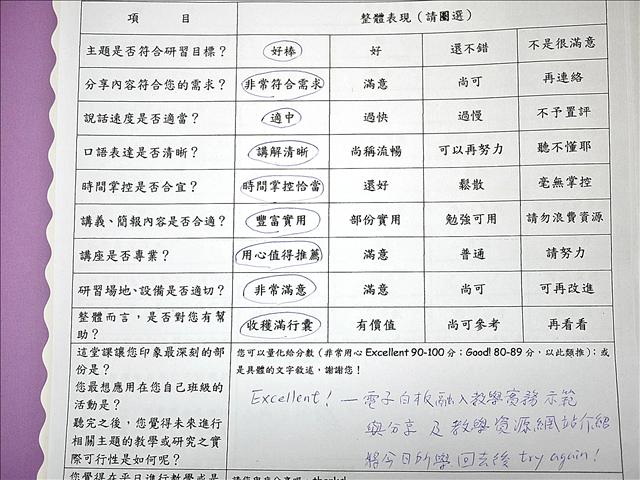 項 目 整體表現（請圈選）
主題是否符合研習目標？ 好棒 好 還不錯 不是很滿意
分享內容符合您的需求？ 非常符合需求 滿意 尚可 再連絡
說話速度是否適當？ 適中 過快 過慢 不予置評
口語表達是否清晰？ 講解清晰 尚稱流暢 可以再努力 聽不懂耶
時間掌控是否合宜？ 時間掌控恰當 還好 鬆散 毫無掌控
講義、簡報內容是否合適？ 豐富實用 部份實用 勉強可用 請勿浪費資源
講座是否專業？ 用心值得推薦 滿意 普通 請努力
研習場地、設備是否適切？ 非常滿意 滿意 尚可 可再改進
整體而言，是否對您有幫
助？ 收穫滿行囊 有價值 尚可參考 再看看
這堂課讓您印象最深刻的部
份是？
您最想應用在您自己班級的
活動是？
聽完之後，您覺得未來進行
相關主題的教學或研究之實
際可行性是如何呢？
您可以量化給分數（非常用心 Excellent 90-100 分；Good! 80-89 分，以此類推）；或
是具體的文字敘述，謝謝您！
Excellent! — 電子白板融入教學實務示範
與分享 及 教學資源網站介紹
將今日所學 回去後 try again!
您覺得在平日進行教學或是